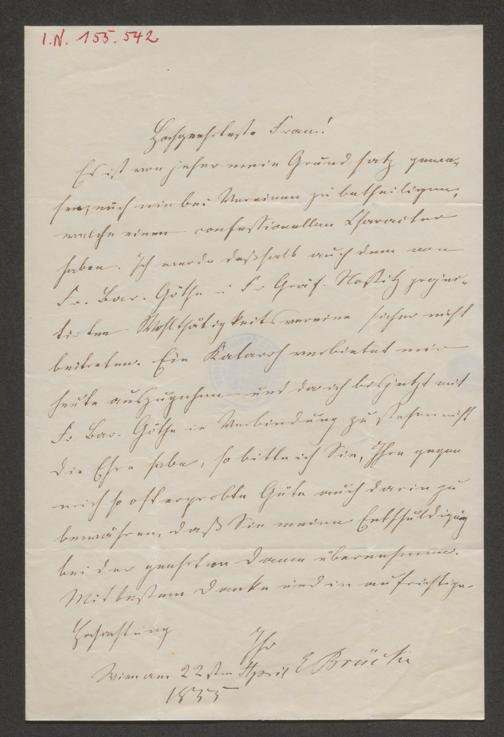 I.N. 155.542
Hochgeehrteste Frau!
Es ist von jeher mein Grundsatz gewe-
sen, mich nie bei Vereinen zu betheiligen,
welche einen confessionellen Character
haben. Ich werde deßhalb auch dem von
Fr. Bar. Göthe u Fr Gräf. Nostitz projec-
tirten Wohlthätigkeitsvereine sicher nicht
beitreten. Ein Katarrh verbietet mir
heute auszugehen und da ich bis jetzt mit
Fr Bar. Göthe in Verbindung zu stehen nicht
die Ehre habe, so bitte ich Sie, Ihre gegen
mich so oft erprobte Güte auch darin zu
bewähren, daß Sie meine Entschuldigung
bei der geehrten Dame übernehmen.
Mit bestem Danke und in aufrichtiger
Hochachtung
Ihr
Wien am 22sten April E Brücke
1855